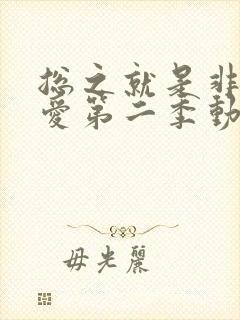 总之就是非
爱第二季动
毋光丽